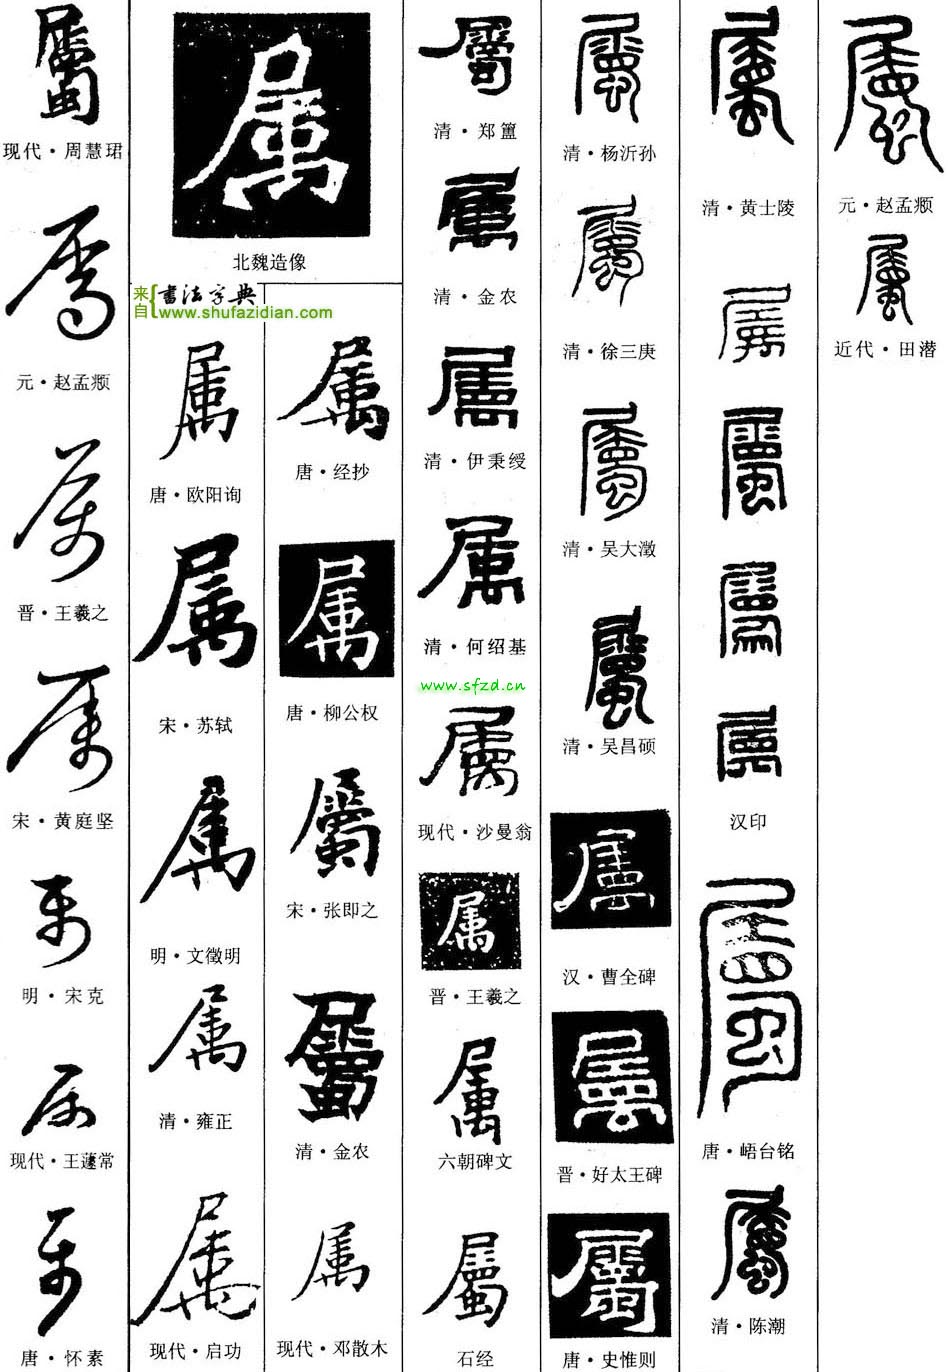 屬
现代·周慧珺
属
元·赵孟𫖯
属
晋·王羲之
属
宋·黄庭坚
属
明·宋克
属
现代·王蘧常
属
唐·怀素
属
北魏造像
来自{书法字典
www.shufazidian.com
属
唐·欧阳询
属
宋·苏轼
属
明·文徵明
属
清·雍正
属
现代·启功
属
唐·经抄
属
唐·柳公权
屬
宋·张即之
屬
清·金农
属
现代·邓散木
屬
清·郑簠
属
清·金农
属
清·伊秉绶
属
清·何绍基
www.sfzd.cn
屬
现代·沙曼翁
属
晋·王羲之
属
六朝碑文
屬
石经
屬
清·杨沂孙
屬
清·徐三庚
屬
清·吴大澂
屬
清·吴昌硕
属
汉·曹全碑
属
晋·好太王碑
屬
唐·史惟则
屬
清·黄士陵
屬
屬
屬
屬
汉印
屬
唐·峿台铭
屬
清·陈潮
屬
元·赵孟𫖯
屬
近代·田潜